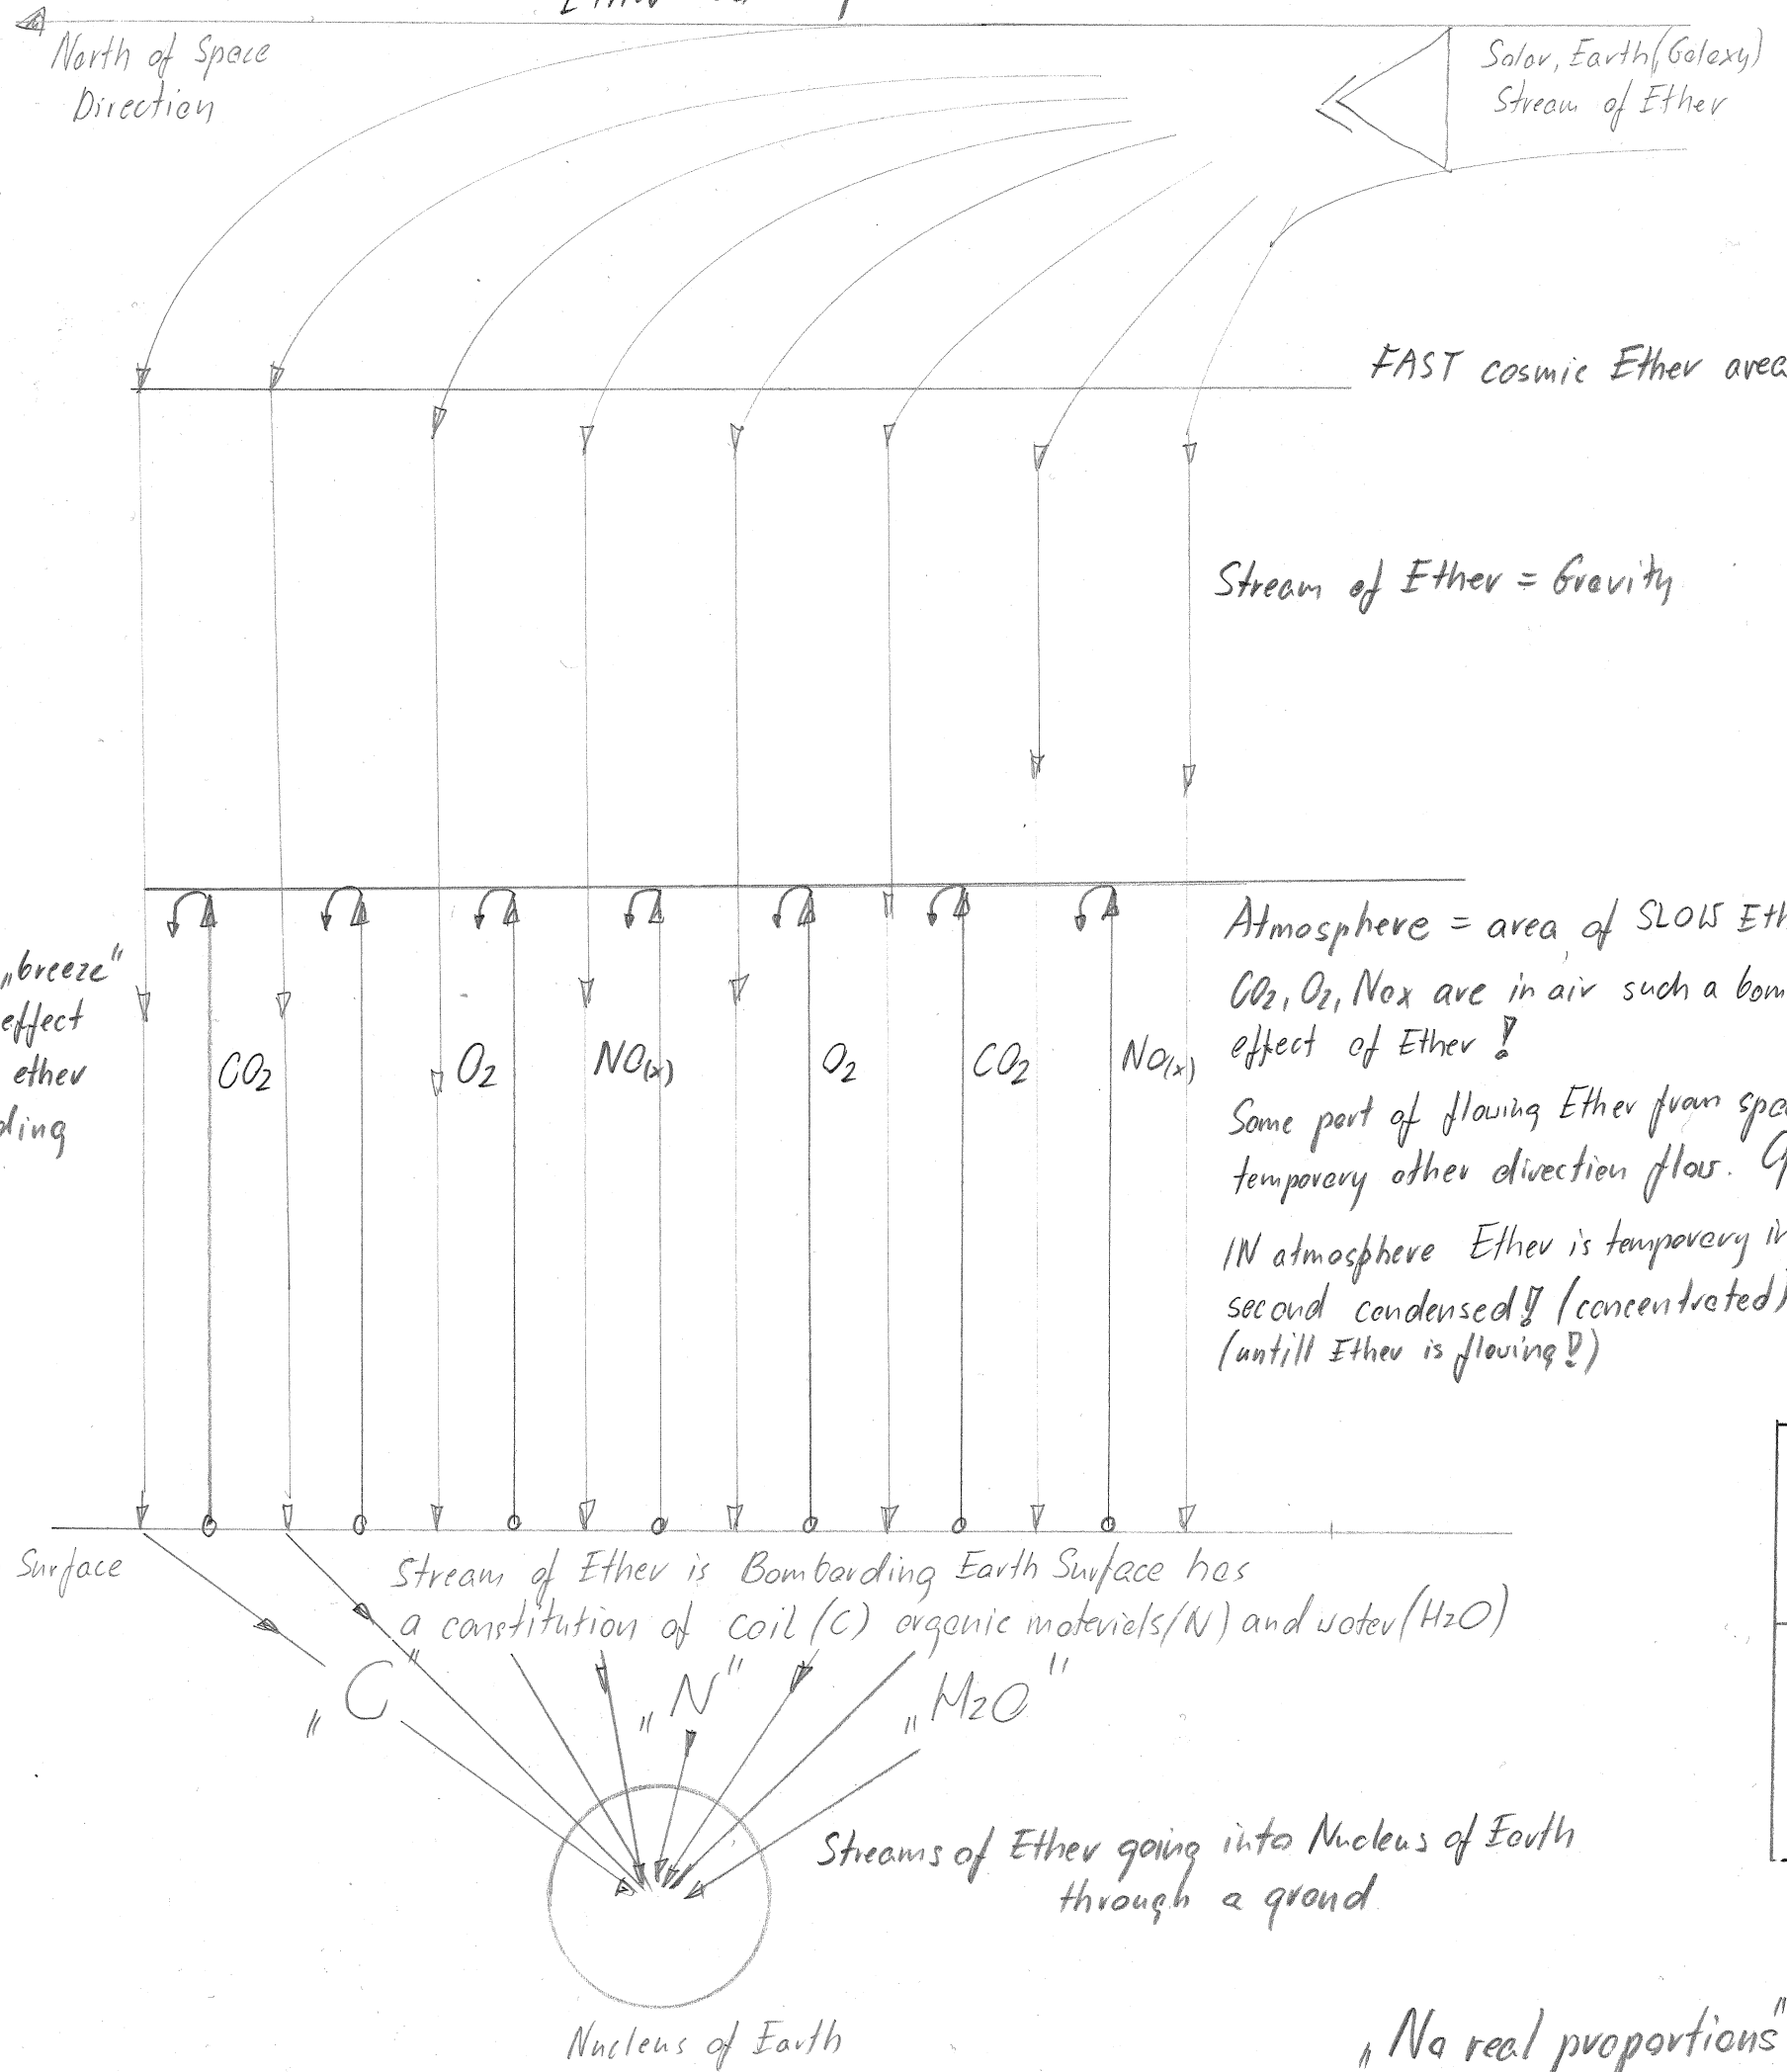 North of Space
Direction
Solar, Earth (Galaxy)
Stream of Ether
FAST cosmic Ether area
Stream of Ether = Gravity
„breeze"
effect
ether
CO2
O2
NO(x)
O2
CO2
NO(x)
Atmosphere = area of SLOW Eth
CO2, O2, Nox are in air such a bom
effect of Ether !
Some part of flowing Ether from spa
temporary other direction flow.
IN atmosphere Ether is temporary in
second condensed! (concentrated)
(untill Ether is flowing!)
Surface
Stream of Ether is Bombarding Earth Surface has
a constitution of coil (C) organic materials/N) and water (H2O)
„C"
„N"
„H2O"
Streams of Ether going into Nucleus of Earth
through a grond
Nucleus of Earth
„No real proportions"